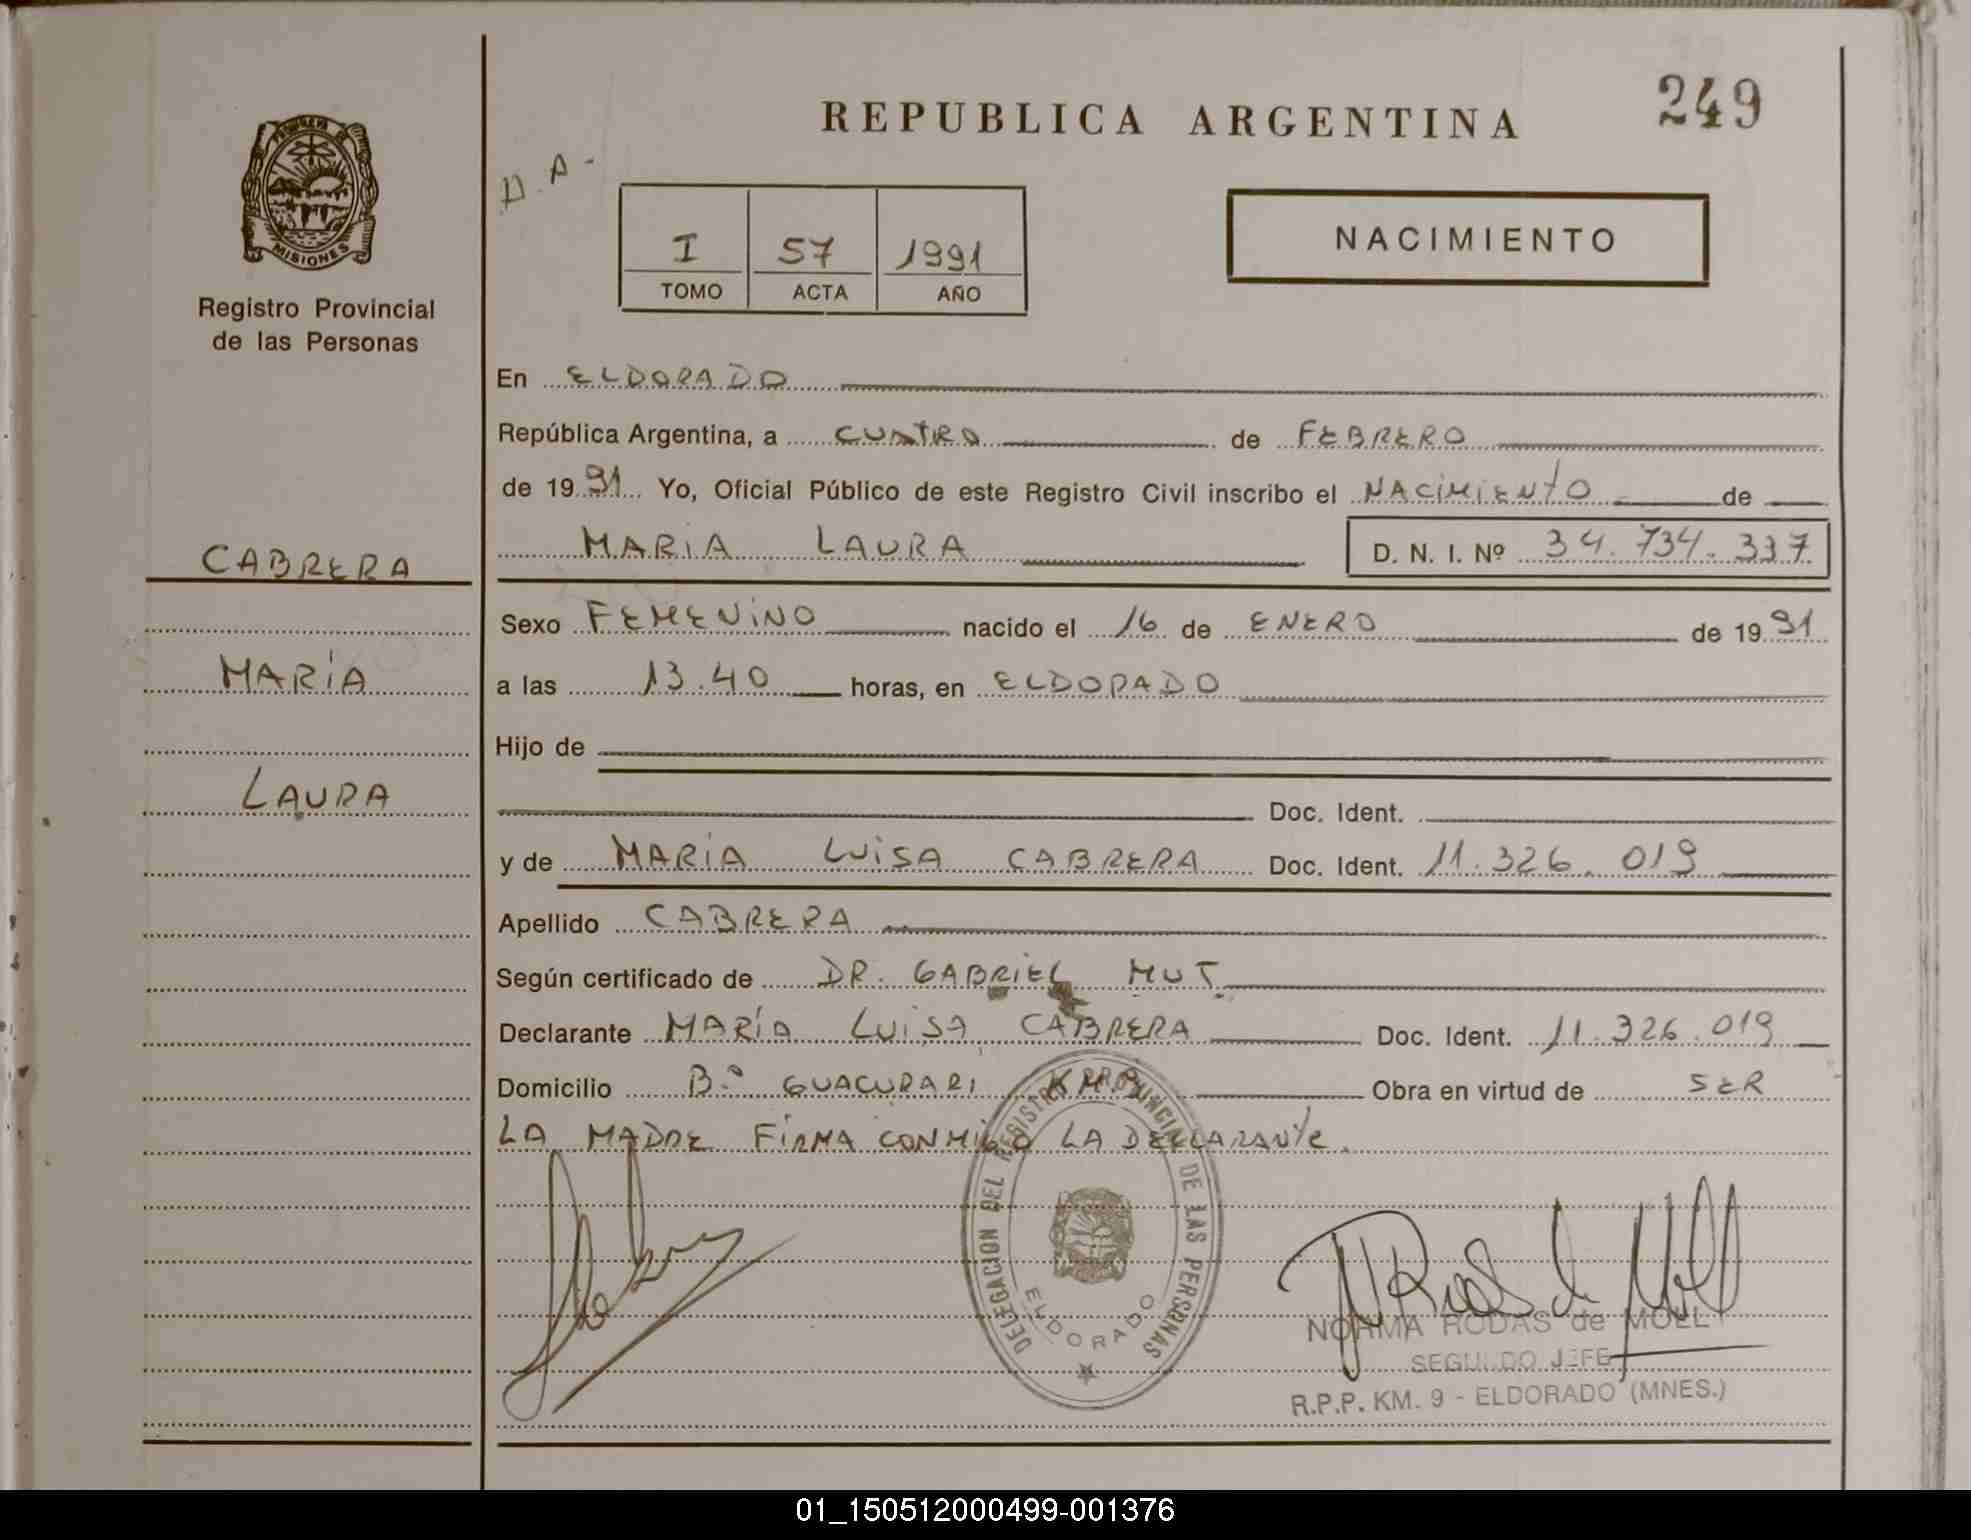 249
REPUBLICA ARGENTINA
D.A-
I 57 1991
TOMO ACTA AÑO
NACIMIENTO
MISIONES
Registro Provincial
de las Personas
CABRERA
MARÍA
LAURA
En ELDORADO
República Argentina, a CUATRO de FEBRERO
de 1991 Yo, Oficial Público de este Registro Civil inscribo el NACIMIENTO de
MARIA LAURA D. N. I. Nº 34.734.337
Sexo FEMENINO nacido el 16 de ENERO de 1991
a las 13.40 horas, en ELDORADO
Hijo de
Doc. Ident.
y de MARÍA LUISA CABRERA Doc. Ident. 11.326.019
Apellido CABRERA
Según certificado de DR. GABRIEL MUT
Declarante MARÍA LUISA CABRERA Doc. Ident. 11.326.019
Domicilio Bº GUACURARI KM Obra en virtud de SER
LA MADRE FIRMA CONMIGO LA DECLARANTE.
DELEGACION DEL REGISTRO PROVINCIAL DE LAS PERSONAS
ELDORADO
NORMA RODAS de MOEL
SEGUNDO JEFE
R.P.P. KM. 9 - ELDORADO (MNES.)
01_150512000499-001376